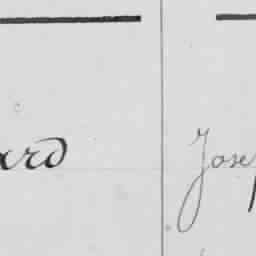 ard Jose